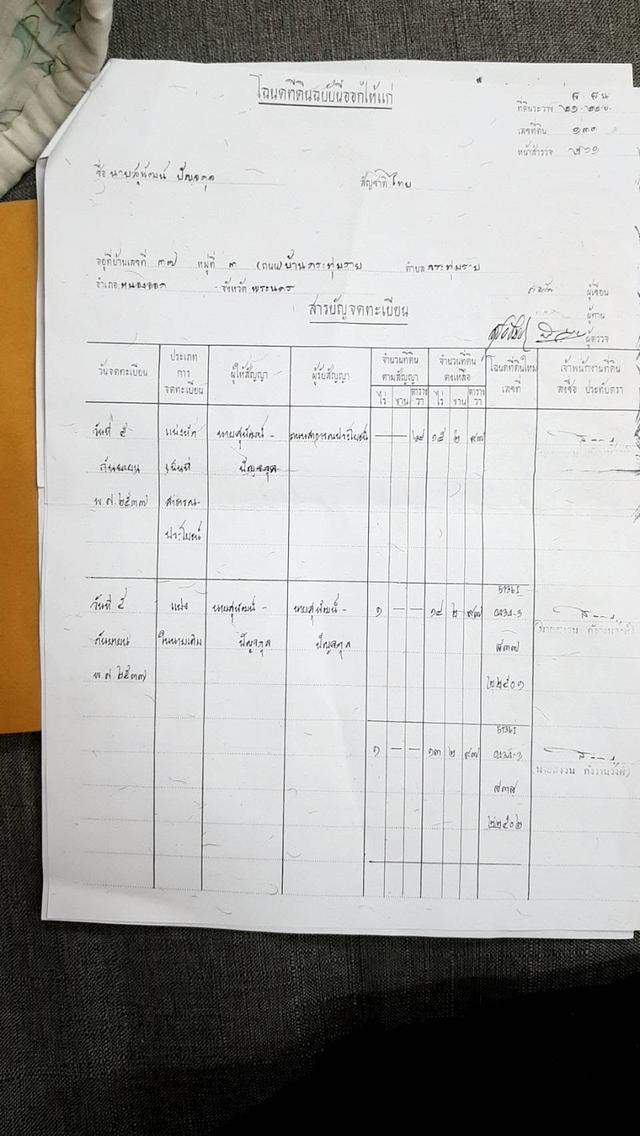 โฉนดที่ดินฉบับนี้ออกให้แก่
ที่ดินระวาง
เลขที่ดิน ๑๓๓
หน้าสำรวจ
ชื่อ นายสุพัฒน์ ปัญจกุล สัญชาติ ไทย
อยู่ที่บ้านเลขที่ ๓๗ หมู่ที่ ๓ (ถนน) บ้านกระทุ่มราย ตำบล กระทุ่มราย
อำเภอ หนองจอก จังหวัด พระนคร
ผู้เขียน
ผู้ทาน
ผู้ตรวจ
สารบัญจดทะเบียน
วันจดทะเบียน ประเภทการจดทะเบียน ผู้ให้สัญญา ผู้รับสัญญา จำนวนที่ดินตามสัญญา ไร่ งาน ตารางวา จำนวนที่ดินคงเหลือ ไร่ งาน ตารางวา โฉนดที่ดินใหม่เลขที่ เจ้าพนักงานที่ดินลงชื่อ ประทับตรา
วันที่ ๕ แบ่งหัก นายสุพัฒน์ - ทางสาธารณประโยชน์ — — ๒ ๙๗
กันยายน เป็นที่ ปัญจกุล
พ.ศ. ๒๕๓๗ สาธารณ-
ประโยชน์
วันที่ ๕ แบ่ง นายสุพัฒน์ - นายสุพัฒน์ - ๑ — — ๑๔ ๒ ๙๗ 5136I
กันยายน ในนามเดิม ปัญจกุล ปัญจกุล
พ.ศ. ๒๕๓๗
๒๒๕๐๑
๑ — — ๑๓ ๒ ๙๗ 5136I
๒๒๕๐๒